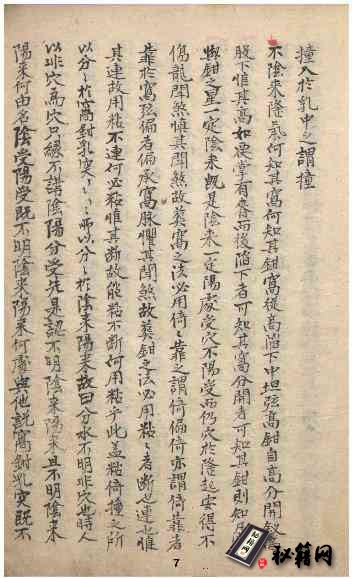 撞入於乳中之謂撞
不陰來陰氣何知其窩何知其鉗窩從高陷下中坦弦高鉗自高分開釵
股下惟其高如栗掌有脊而後陷下者可知其窩分開者可知其鉗則知
與鉗之星一定陰來既是陰來一定陽處受穴不陽受而仍穴於陰起安得不
傷龍聞煞惧其聞煞故葬窩之法必用倚〻靠之謂倚偏倚亦謂倚靠者
靠於窩弦偏者偏承窩脉懼其聞煞故葬鉗之法必用粘〻者断也連也惟
其連故用粘不連何必粘惟其断故能粘不断何用粘乎此盖粘倚撞之所
以分〻於窩鉗乳突〻〻〻所以分〻於陰來陽來故曰分水不明非穴也時人
以非穴為穴只緣不講陰陽分受此是認不明陰來陽來且不明陰來
陽來何由名陰受陽受既不明陰來陽來何處與他説窩鉗乳突既不
7
秘籍网